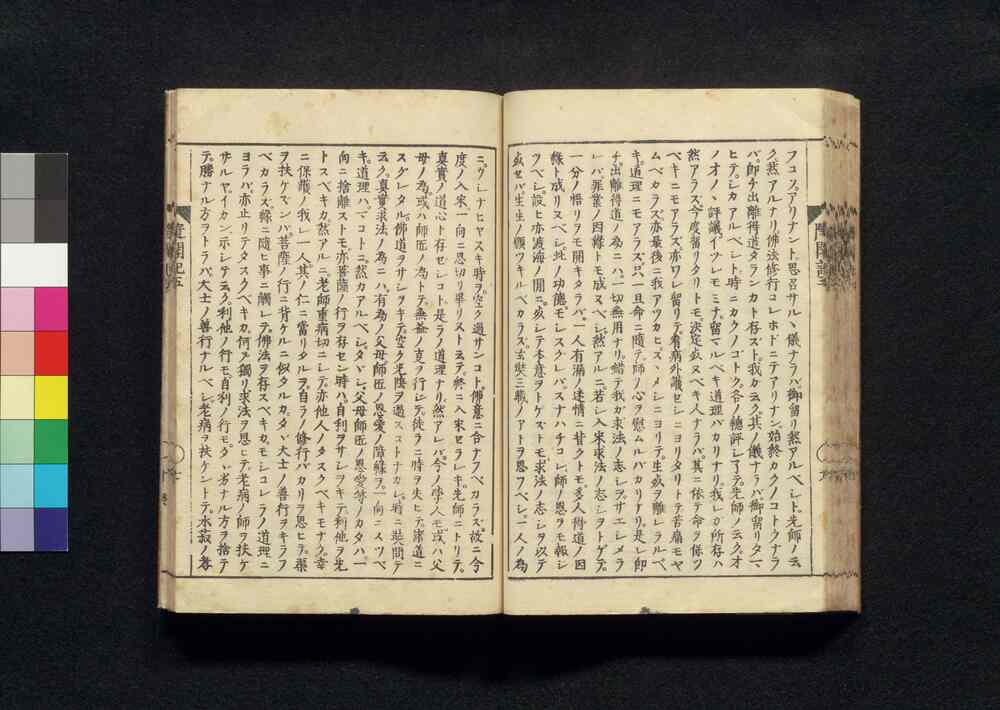 フコソアリナント思召サルヽ儀ナラバ御留リ然アルベシト先師ノ云
ク然アルナリ佛法修行コレホドニテアリナン始終カクノコトクナラ
バ即チ出離得道タランカト存ズト我カ云ク其ノ儀ナラバ御留リタマ
ヒテシカアルベシト時ニカクノゴトク各ノ總評シ了テ先師ノ云クオ
ノオノノ評議イヅレモミナ留マルベキ道理バカリナリ我レガ所存ハ
然アラズ今度留リタリトモ決定死ヌベキ人ナラバ其ニ依テ命ヲ保ツ
ベキニモアラズ亦ワレ留リテ看病外護セシニヨリタリトテ苦痛モヤ
ムベカラズ亦最後ニ我アツカヒスヽメシニヨリテ生死ヲ離レラルベ
キ道理ニモアラズ只一旦命ニ隨テ師ノ心ヲ慰ムルバカリナリ是レ即
チ出離得道ノ為ニハ一切無用ナリ錯テ我ガ求法ノ志シヲサエシメラ
レバ罪業ノ因縁トモ成ヌベシ然アルニ若シ入宋求法ノ志シヲトゲテ
一分ノ悟リヲモ開キタラバ一人有漏ノ迷情ニ背クトモ多人得道ノ因
縁ト成リヌベシ此ノ功德モシスグレバスナハチコレ師ノ恩ヲモ報シ
ツベシ設ヒ亦渡海ノ間ニ死シテ本意ヲトゲズトモ求法ノ志シヲ以テ
死セバ生生ノ願ツキルベカラズ玄奘三藏ノアトヲ思フベシ一人ノ為
ニウシナヒヤスキ時ヲ空ク過サンコト佛意ニ合ナフベカラズ故ニ今
度ノ入宋一向ニ思切リ畢リヌト云テ終ニ入宋セラレキ先師ニトリテ
真實ノ道心ト存セシコト是ラノ道理ナリ然アレバ今ノ學人モ或ハ父
母ノ為或ハ師匠ノ為トテ無益ノ亊ヲ行シテ徒ラニ時ヲ失ヒテ諸道ニ
スグレタル佛道ヲサシヲキテ空ク光陰ヲ過スコトナカレ時ニ奘問テ
云ク真實求法ノ為ニハ有為ノ父母師匠ノ恩愛ノ障縁ヲ一向ニスツベ
キ道理ハマコトニ然カアルベシタヾシ父母師匠ノ恩愛等ノカタハ一
向ニ捨離ストモ亦菩薩ノ行ヲ存セン時ハ自利ヲサシヲキテ利他ヲ先
トスベキカ然アルニ老師重病切ニシテ亦他人ノタスクベキモナク幸
ニ保護ノ我レ一人其ノ仁ニ當リタルヲ自ラノ修行バカリヲ思ヒテ藥
ヲ扶ケズンバ菩薩ノ行ニ背ケルニ似タルカタヾ大士ノ善行ヲキラフ
ベカラズ縁ニ隨ヒ事ニ觸レテ佛法ヲ存スベキカモシコレラノ道理ニ
ヨラバ亦止リテタスクベキカ何ゾ獨リ求法ヲ思ヒテ老病ノ師ヲ扶ケ
サルヤイカン示シテ云ク利他ノ行モ自利ノ行モタヾ劣ナル方ヲ捨テ
テ勝ナル方ヲトラバ大士ノ善行ナルベシ老病ヲ扶ケントテ水菽ノ孝